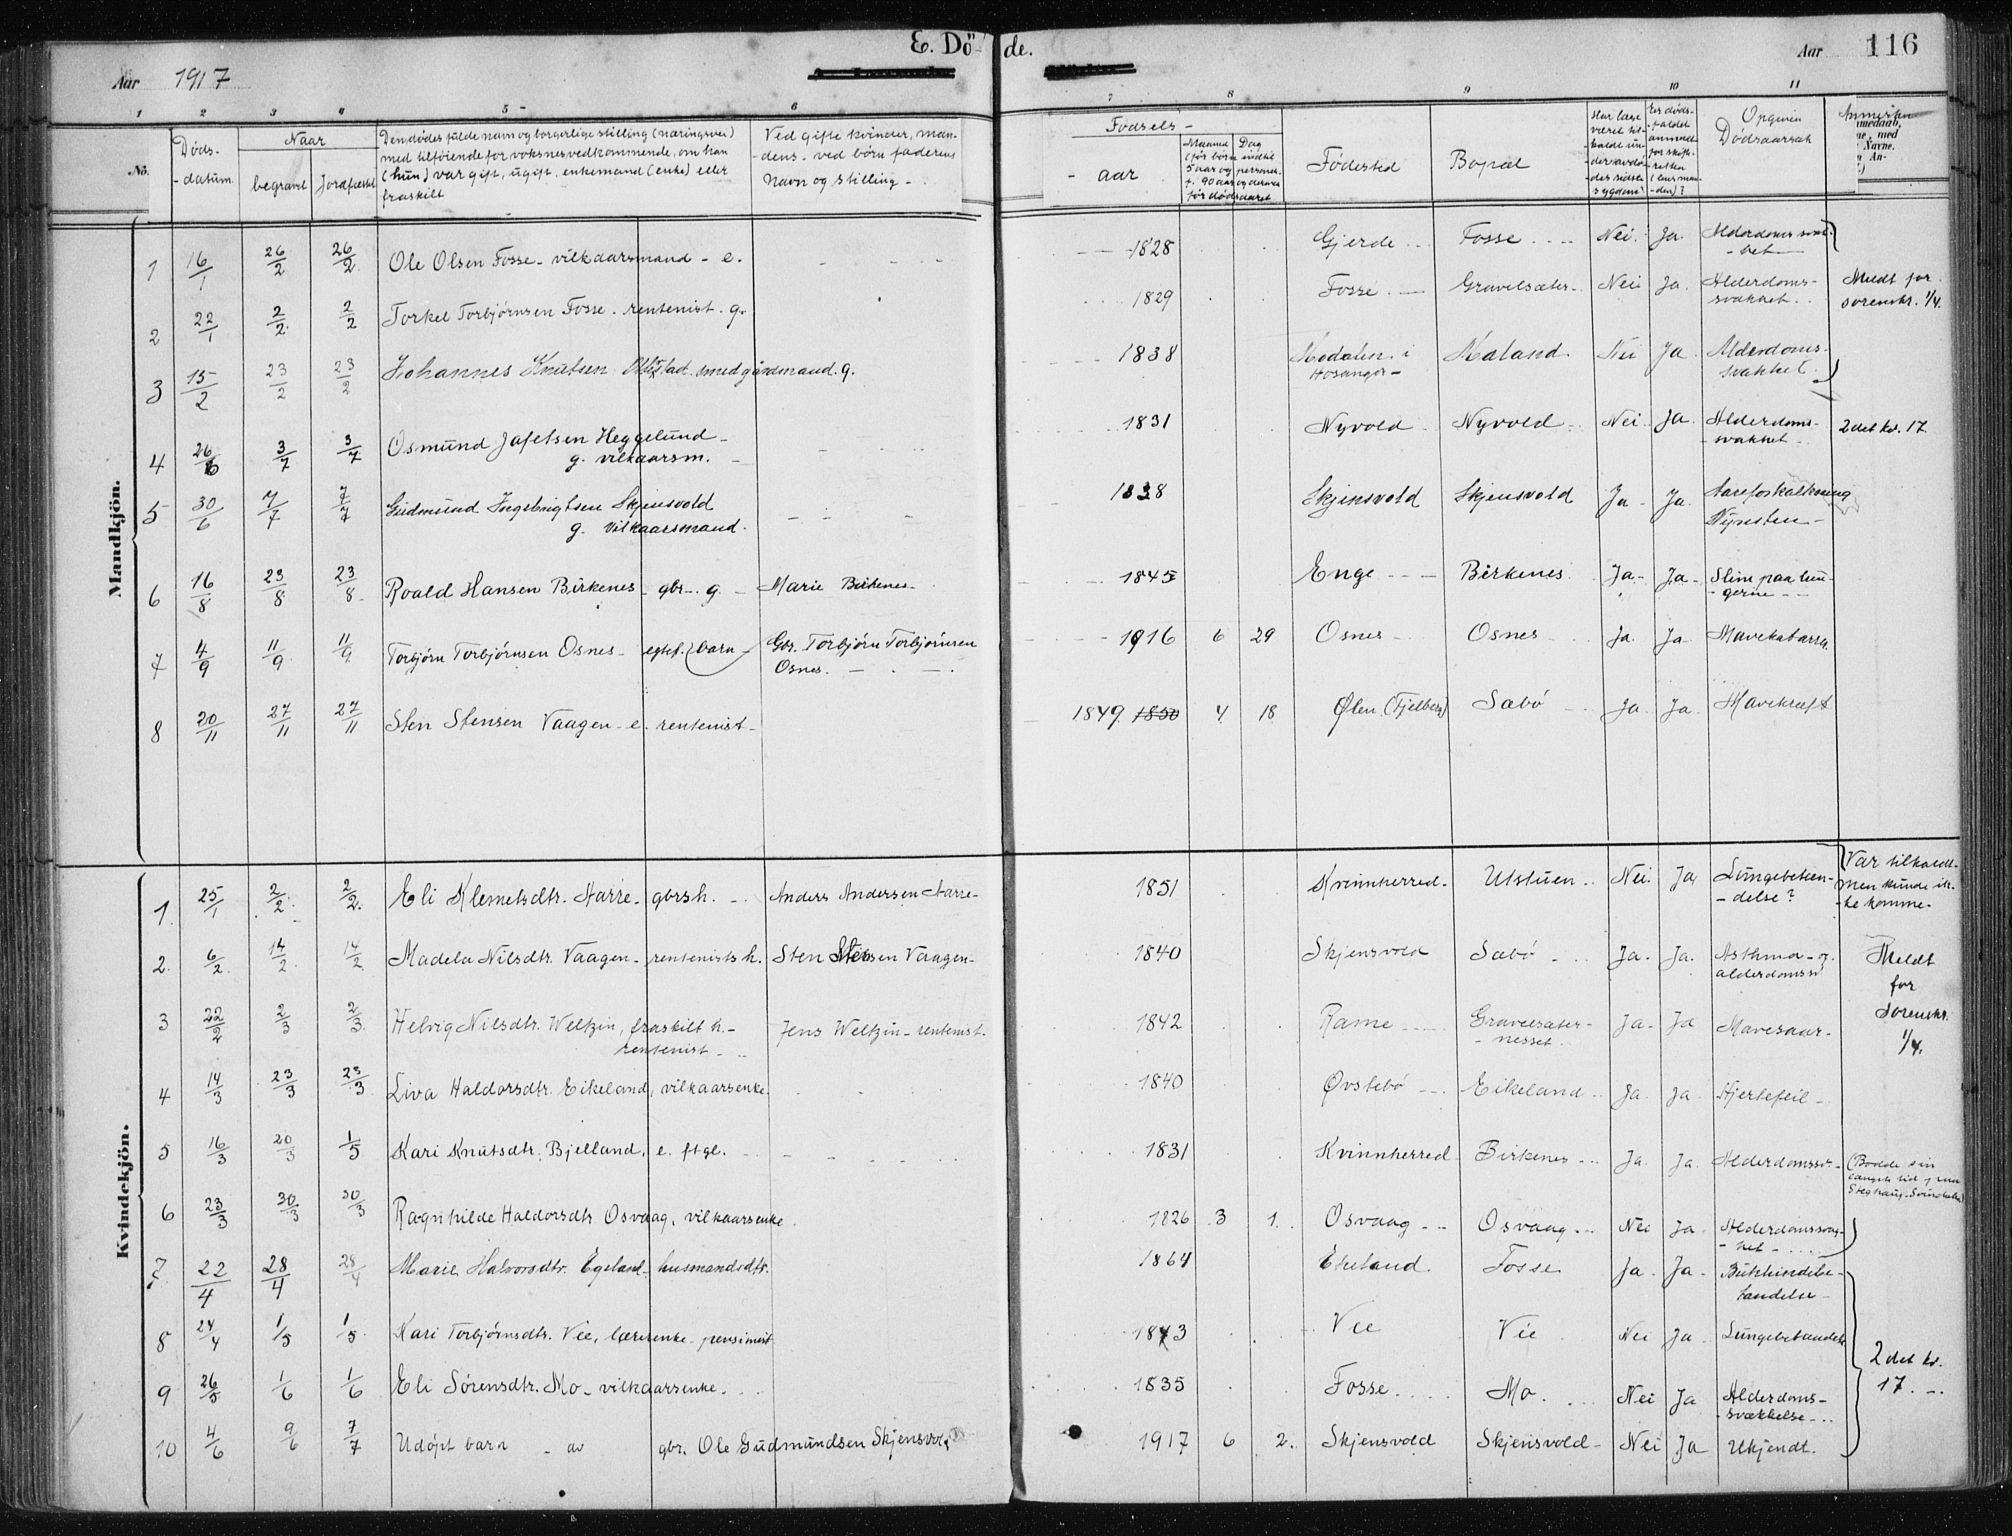 E. Döde.
Aar 1917
Aar 116
1 2 3 4 5 6 7 8 9 10 11
No.
Döds-datum
Naar
begravet
Jordfæstet
Den dødes fulde navn og borgerlige stilling (næringsvei)
med tilföiende for voksnes vedkommende, om han
(hun) var gift, ugift, enkemand (enke) eller
fraskilt
Ved gifte kvinder, man-
dens - ved börn faderens
navn og stilling -
Födsels-
aar
Maaned
Dag
Födested
Bopæl
Opgiven
Dödsaarsak
Mandkjön.
1 16/1 26/2 26/2 Ole Olsen Fosse - vilkaarsmand - e. 1828 Gjerde Fosse Nei. Ja. Alderdomssvak-
het
2 22/1 2/2 2/2 Torkel Torbjørnsen Fosse - rentenist. g. 1829 Fosse Gravelsæter Nei Ja. Alderdoms-
svakhet
Meldt for
sorenskr. 1/4.
3 15/2 23/2 23/2 Johannes Knutsen smed gårdmand. g. 1838 Modalen i
Hosanger - Maland. Nei Ja. Alderdoms-
svakhet.
4 26/6 3/7 3/7 Osmund Jafetsen Heggelund -
g. vilkaarsm. 1831 Nyvold Nyvold Nei Ja Alderdoms-
svakhet 2det kv. 17.
5 30/6 7/7 7/7 Gudmund Ingebrigtsen Skjensvold
g. vilkaarsmand. 1838 Skjensvold Skjensvold Ja - Ja. Aareforkalkning
Nyresten -
6 16/8 23/8 23/8 Roald Hansen Birkenes - gbr. g. - Marie Birkenes - 1845 Enge Birkenes. Ja - Ja - Slim paa lun-
gerne
7 4/9 11/9 11/9 Torbjørn Torbjørnsen Osnes - egtef. barn - Gbr. Torbjørn Torbjørnsen
Osnes. 1916 6 29 Osnes Osnes Ja. Ja. Mavekatarrh.
8 20/11 27/11 27/11 Sten Stensen Vaagen - e. rentenist - 1849 1850 4 18 Ølen (Fjelberg) Sæbö Ja Ja. Mavekreft
Kvindekjön.
1. 25/1 2/2 2/2. Eli Klemetsdtr. Harre - gbrsh. Anders Andersen Harre - 1851 Kvinnherred. Utstuen Nei. Ja Lungebeten-
delse?
Var tilkaldt.
men kunde ik-
ke komme -
2. 6/2 14/2 14/2 Madela Nilsdtr. Vaagen - rentenistsh. Sten Stensen Vaagen - 1840 Skjensvold Sæbö Ja. Ja. Asthma - og
alderdomssv.
Meldt
for
Sorenskr.
1/4.
3 22/2 2/3 2/3 Helvig Nilsdtr. Weltzin, fraskilt h. -
rentenist - Jens Weltzin - rentenist. 1842 Rame Gravelsæter-
nesset. Ja - Ja Mavesaar -
4 14/3 23/3 23/3 Liva Haldorsdtr. Eikeland, vilkaarsenke. 1840 Øvstebö Eikeland Ja. Ja. Hjertefeil -
5 16/3 20/3 1/5 Kari Knutsdtr. Bjelland, e. ftgl. 1831 Kvinnherred Birkenes Ja. Ja. Alderdomssv. -
(Bodde sin
6 23/3 30/3 30/3 Ragnhilde Haldorsdtr Osvaag, vilkaarsenke 1826 3 1. Osvaag Osvaag Nei Ja Alderdomssvag-
het
7 22/4 28/4 28/4 Marie Halvorsdtr. Egeland - husmandsdtr. 1864 Ekeland. Fosse Ja. Ja - Bukhindebe-
tændelse -
8 24/4 1/5 1/5. Kari Torbjørnsdtr. Vie, lærerenke - pensionist 1843 Vie Vie Nei Ja. Lungebetændelse
9 26/5 1/6 1/6 Eli Sörensdtr. Mo - vilkaarsenke. 1835 Fosse Mo. Nei Ja Alderdoms-
svækkelse
2det kv.
17.
10 4/6 9/6 7/7 Udöpt barn - av gbr. Ole Gudmundsen Skjensvold 1917 6 2. Skjensvold Skjensvold - Nei Ja Ukjendt.